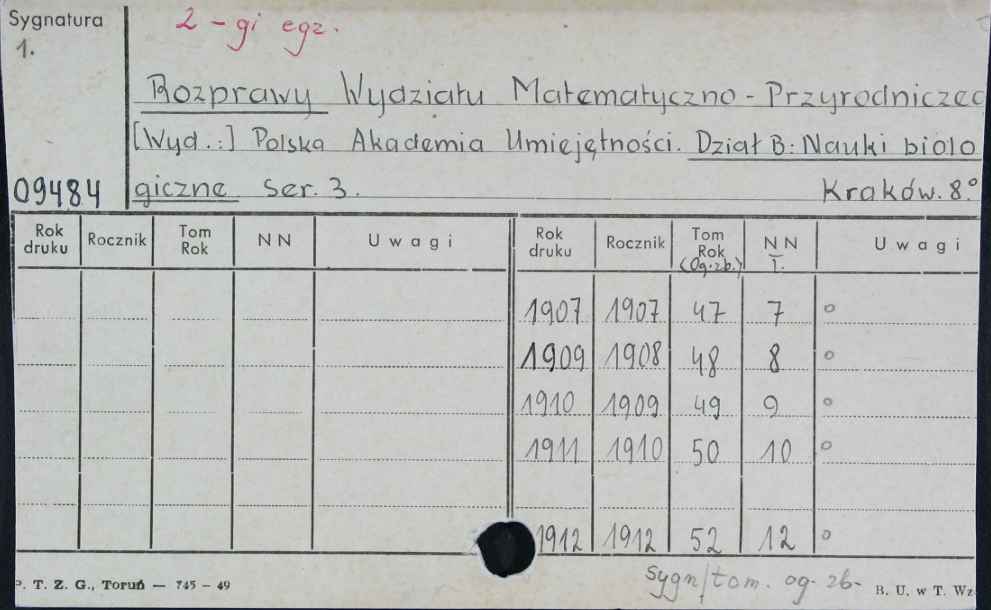 Sygnatura
1.
2-gi egz.
Rozprawy Wydziału Matematyczno-Przyrodniczeg
[Wyd.:] Polska Akademia Umiejętności. Dział B: Nauki biolo
09484 giczne Ser. 3. Kraków. 8°.
Rok druku Rocznik Tom Rok NN Uwagi Rok druku Rocznik Tom Rok (Og.zb.) NN T. Uwagi
1907 1907 47 7 o
1909 1908 48 8 o
1910 1909 49 9 o
1911 1910 50 10 o
1912 1912 52 12 o
Sygn/tom. og. zb.
P. T. Z. G., Toruń — 745 - 49 B. U. w T. Wz